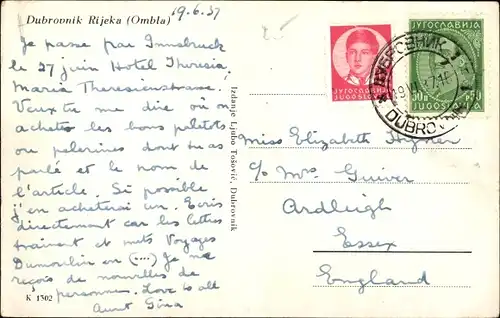 Dubrovnik Rijeka (Ombla)
19.6.37
Je passe par Innsbruck
le 27 juin Hotel Theresia,
Maria Theresienstrasse.
Veux tu me dire où on
achète les bons paletots
ou pelerines dont tu as
parlé et le nom de
l'article. Si possible
j'en acheterai un. Ecris
directement car les lettres
trainent et mets Voyages
Dumoulin en (....) Je
reçois de nouvelles de
personne. Love to all
Aunt Gina
K 1302
Izdanje Ljubo Tošović, Dubrovnik
ЈУГОСЛАВИЈА
JUGOSLAVIJA
ДУБРОВНИК
DUBROVNIK
Miss Elizabeth
c/o Mrs Guiver
Ardleigh
Essex
England